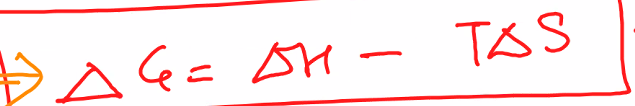 ⇒ ΔG = ΔH − TΔS